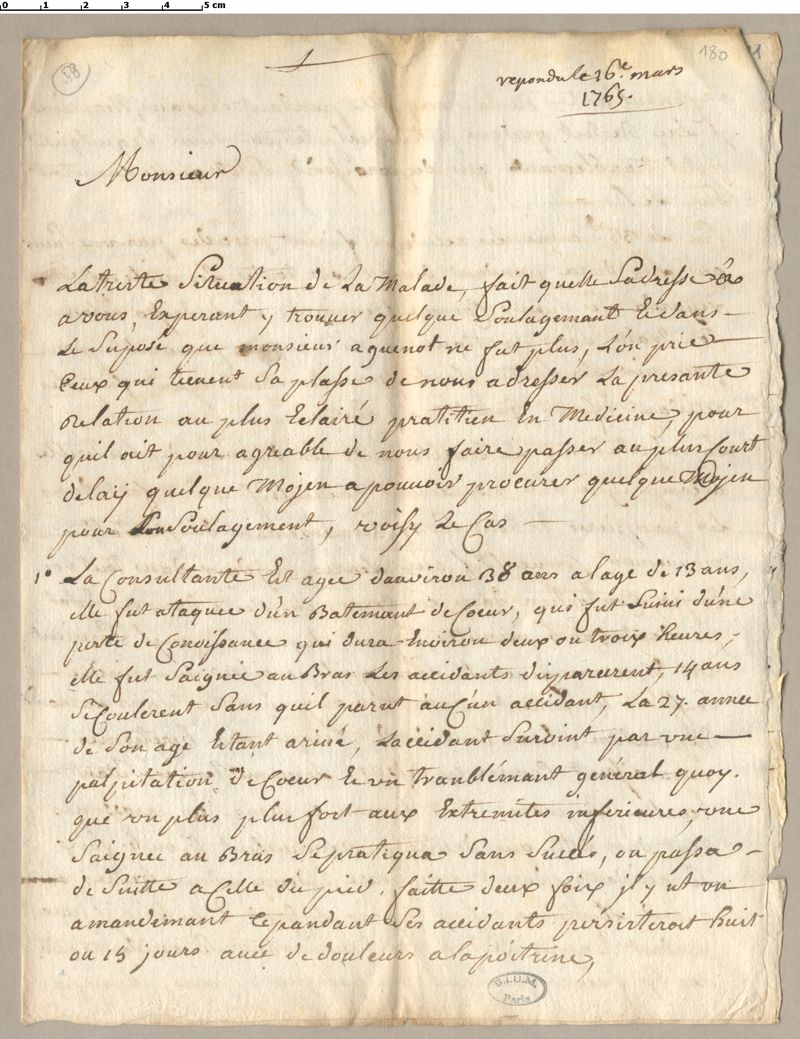 0 1 2 3 4 5 cm
88
180
repondu le 26.e mars
1765.
Monsieur
La triste Situation de La Malade, fait quelle Sadresse a
a vous, Experant y trouver quelque Soulagemant Et dans
Le Suposé que monsieur aguenot ne fut plus, L'on prie
Ceux qui tienent Sa plasse de nous adresser La presante
Relation au plus Eclairé pratitien En Medicine, pour
quil ait pour agreable de nous faire passer au plus Court
delaij quelque Mojen a pouvoir procurer quelque Mojen
pour Son Soulagement, voissy Le Cas
1° La Consultante Est agee danviron 38 ans a lage de 13 ans,
elle fut ataquee d'un Batemant de Coeur, qui fut Suivi d'une
perte de Conoissance qui dura Environ deux ou troix heures,
elle fut Saignée au Bras Les accidants disparurent, 14 ans
SeCoulerent Sans quil parut auCun accidant, La 27. annee
de Son age Estant arivé, Laccidant Survint par une
palpitation de Coeur Et un tramblémant general quoy.
que un plus plus fort aux Extremites inferieures, une
Saignee au Bras Se pratiqua Sans Succés, on passa
de Suitte a Celle du pied. faitte deux foix jl y ut un
amandemant Cepandant Ses accidants persisteroit huit
ou 15 jours avec de douleurs a la poitrine,
B.I.U.M.
Paris